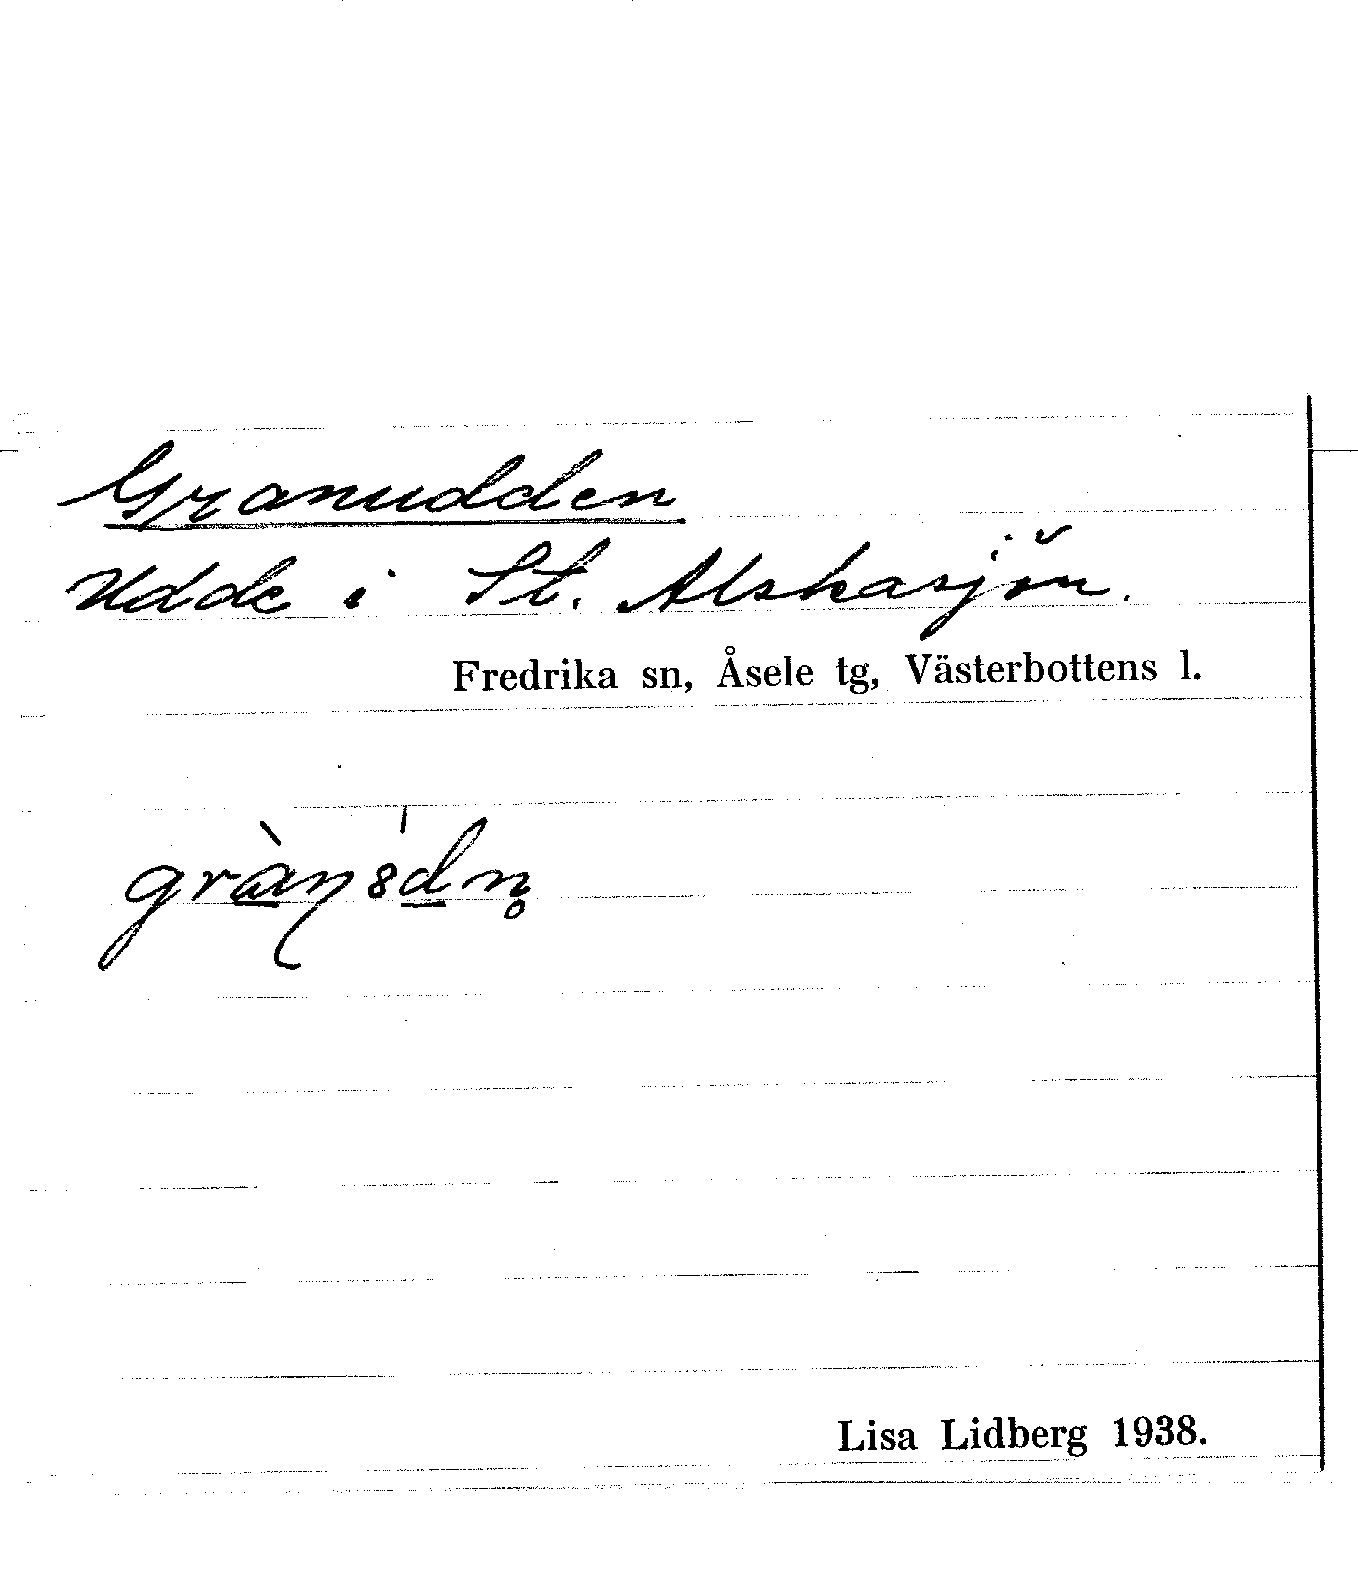 Granudden
Udde i St. Alskasjön.
Fredrika sn, Åsele tg, Västerbottens l.
Lisa Lidberg 1938.